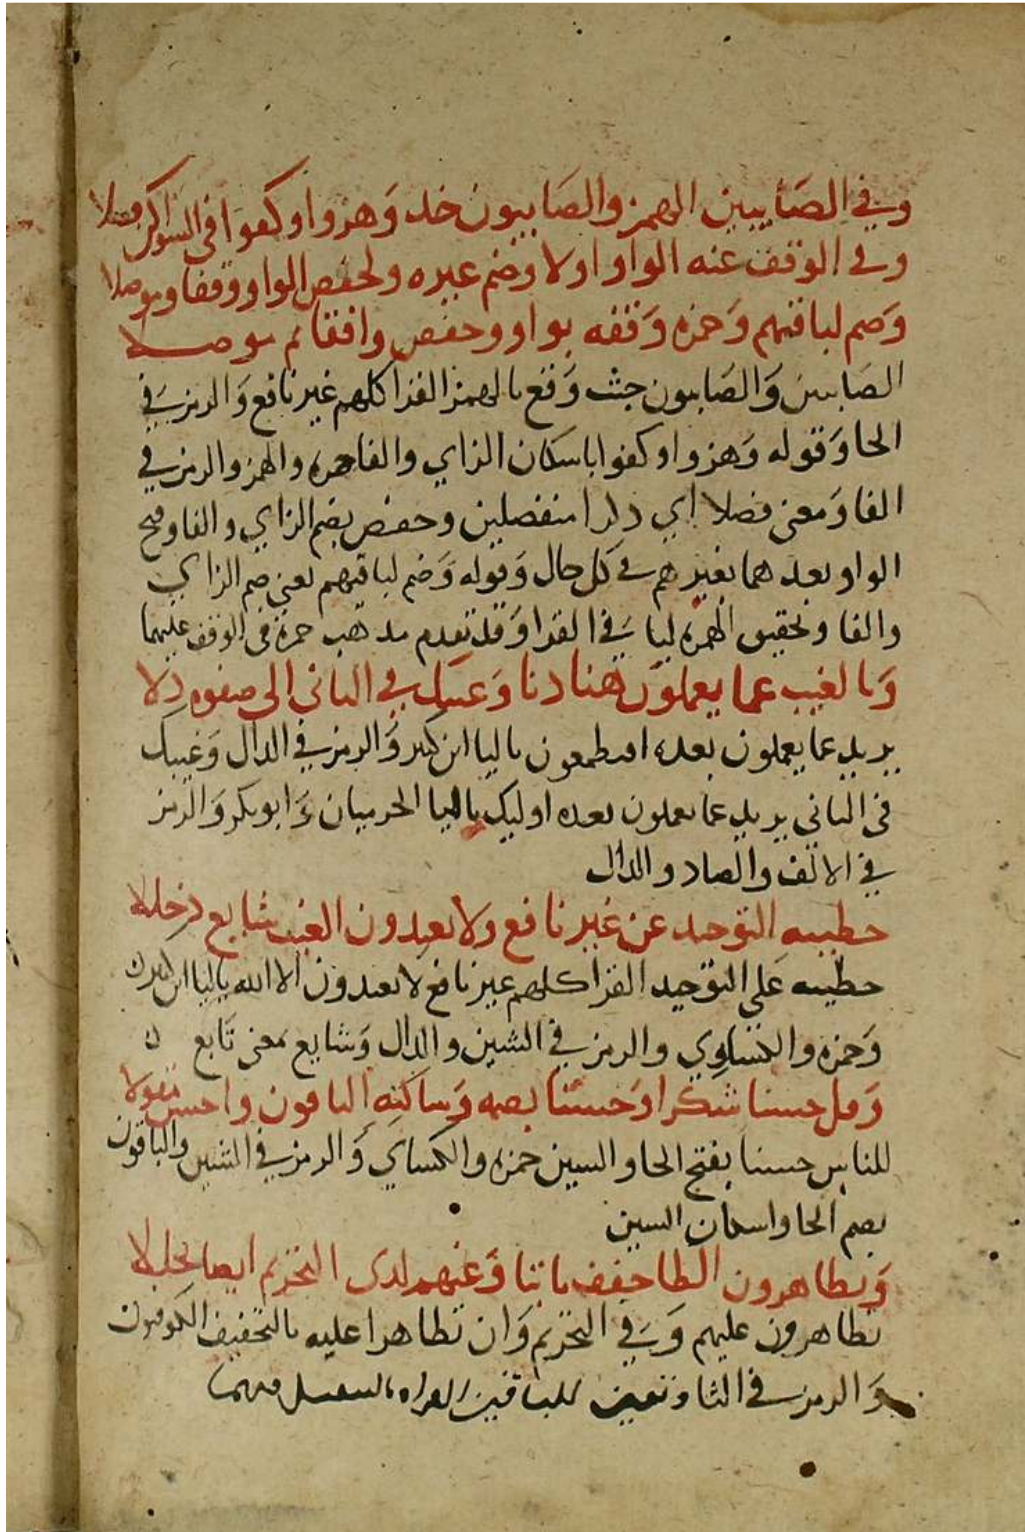 وفي الصابيين الهمز والصابيون خذ وهزوا وكفوا في السواكن فصلا
وفي الوقف عنه الواو اولا وضم غيره ولحفص الواو وقفا وموصلا
وضم لباقيهم وحمزه وقفه بواو وحفص واقفا ثم موصلا
الصابيين والصابيون حيث وقع بالهمز القرا كلهم غير نافع والرمز في
الخا وقوله وهزوا وكفوا باسكان الزاي والفا حمزه والهمز والرمز في
الفا ومعنى فصلا اي ذكرا منفصلين وحفص بضم الزاي والفا وفتح
الواو بعدهما بغير همز في كل حال وقوله وضم لباقيهم يعني ضم الزاي
والفا وتحقيق الهمزه لباقي القرا وقد تقدم مذهب حمزة في الوقف عليهما
وبالغيب عما يعملون هنا دنا وغيبك في الثاني الى صفوه دلا
يريد عما يعملون بعده افتطمعون باليا ابن كثير والرمز في الدال وغيبك
في الثاني يريد عما يعملون بعده اوليك باليا الحرميان وابوبكر والرمز
في الالف والصاد والدال
خطيته التوحيد عن غير نافع ولا يعبدون الغيب شايع دخللا
خطيته على التوحيد القرا كلهم غير نافع لا يعبدون الا الله باليا ابن كثير
وحمزه والكساوي والرمز في الشين والدال وشايع بمعنى تابع
وقل حسنا شكرا وحسنا بضمه وساكنه الباقون واحسن مقولا
للناس حسنا بفتح الحا والسين حمزه والكساي والرمز في الشين والباقون
بضم الحا واسكان السين
وتظاهرون الظا خفف ثابتا وعنهم لدى التحريم ايضا تحللا
تظاهرون عليهم وفي التحريم وان تظاهرا عليه بالتخفيف الكوفيون
والرمز في الثا وتعين للباقين القراه بالتثقيل فيهما